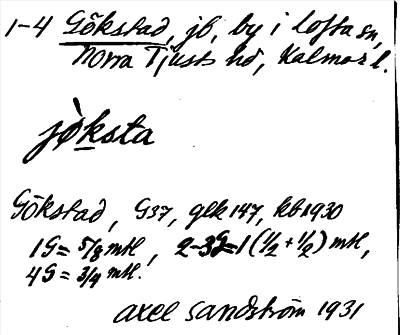 1-4 Gökstad, jb, by i Lofta sn,
Norra Tjusts hd, Kalmar l.
jø̀ksta
Gökstad, G37, glk 147, kb 1930
1G = 5/8 mtl, 2-3G = 1 (1/2 + 1/2) mtl,
4G = 3/4 mtl.
Axel Sandström 1931